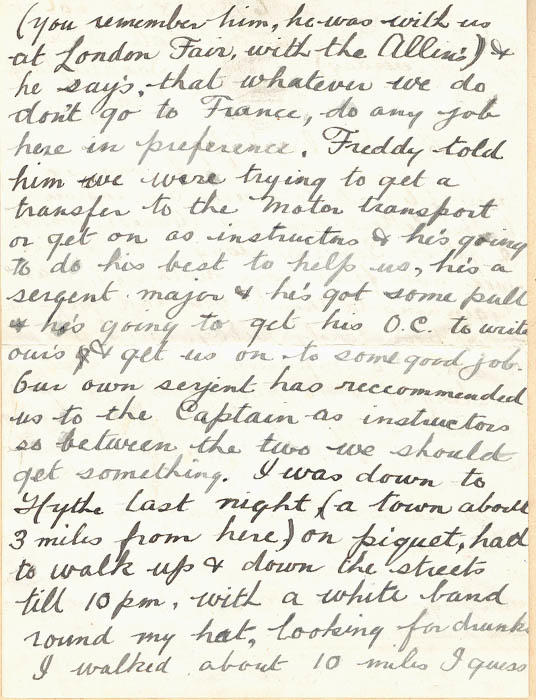 (you remember him, he was with us
at London Fair, with the Allin's) &
he say's, that whatever we do
don't go to France, do any job
here in preference. Freddy told
him we were trying to get a
transfer to the Motor transport
or get on as instructors & he's going
to do his best to help us, he's a
sergent major & he's got some pull
& he's going to get his O.C. to write
ours & get us on to some good job.
Our own serjent has reccommended
us to the Captain as instructors
so between the two we should
get something. I was down to
Hythe last night, (a town about
3 miles from here) on piquet, had
to walk up & down the streets
till 10 pm, with a white band
round my hat, looking for drunks
I walked about 10 miles I guess